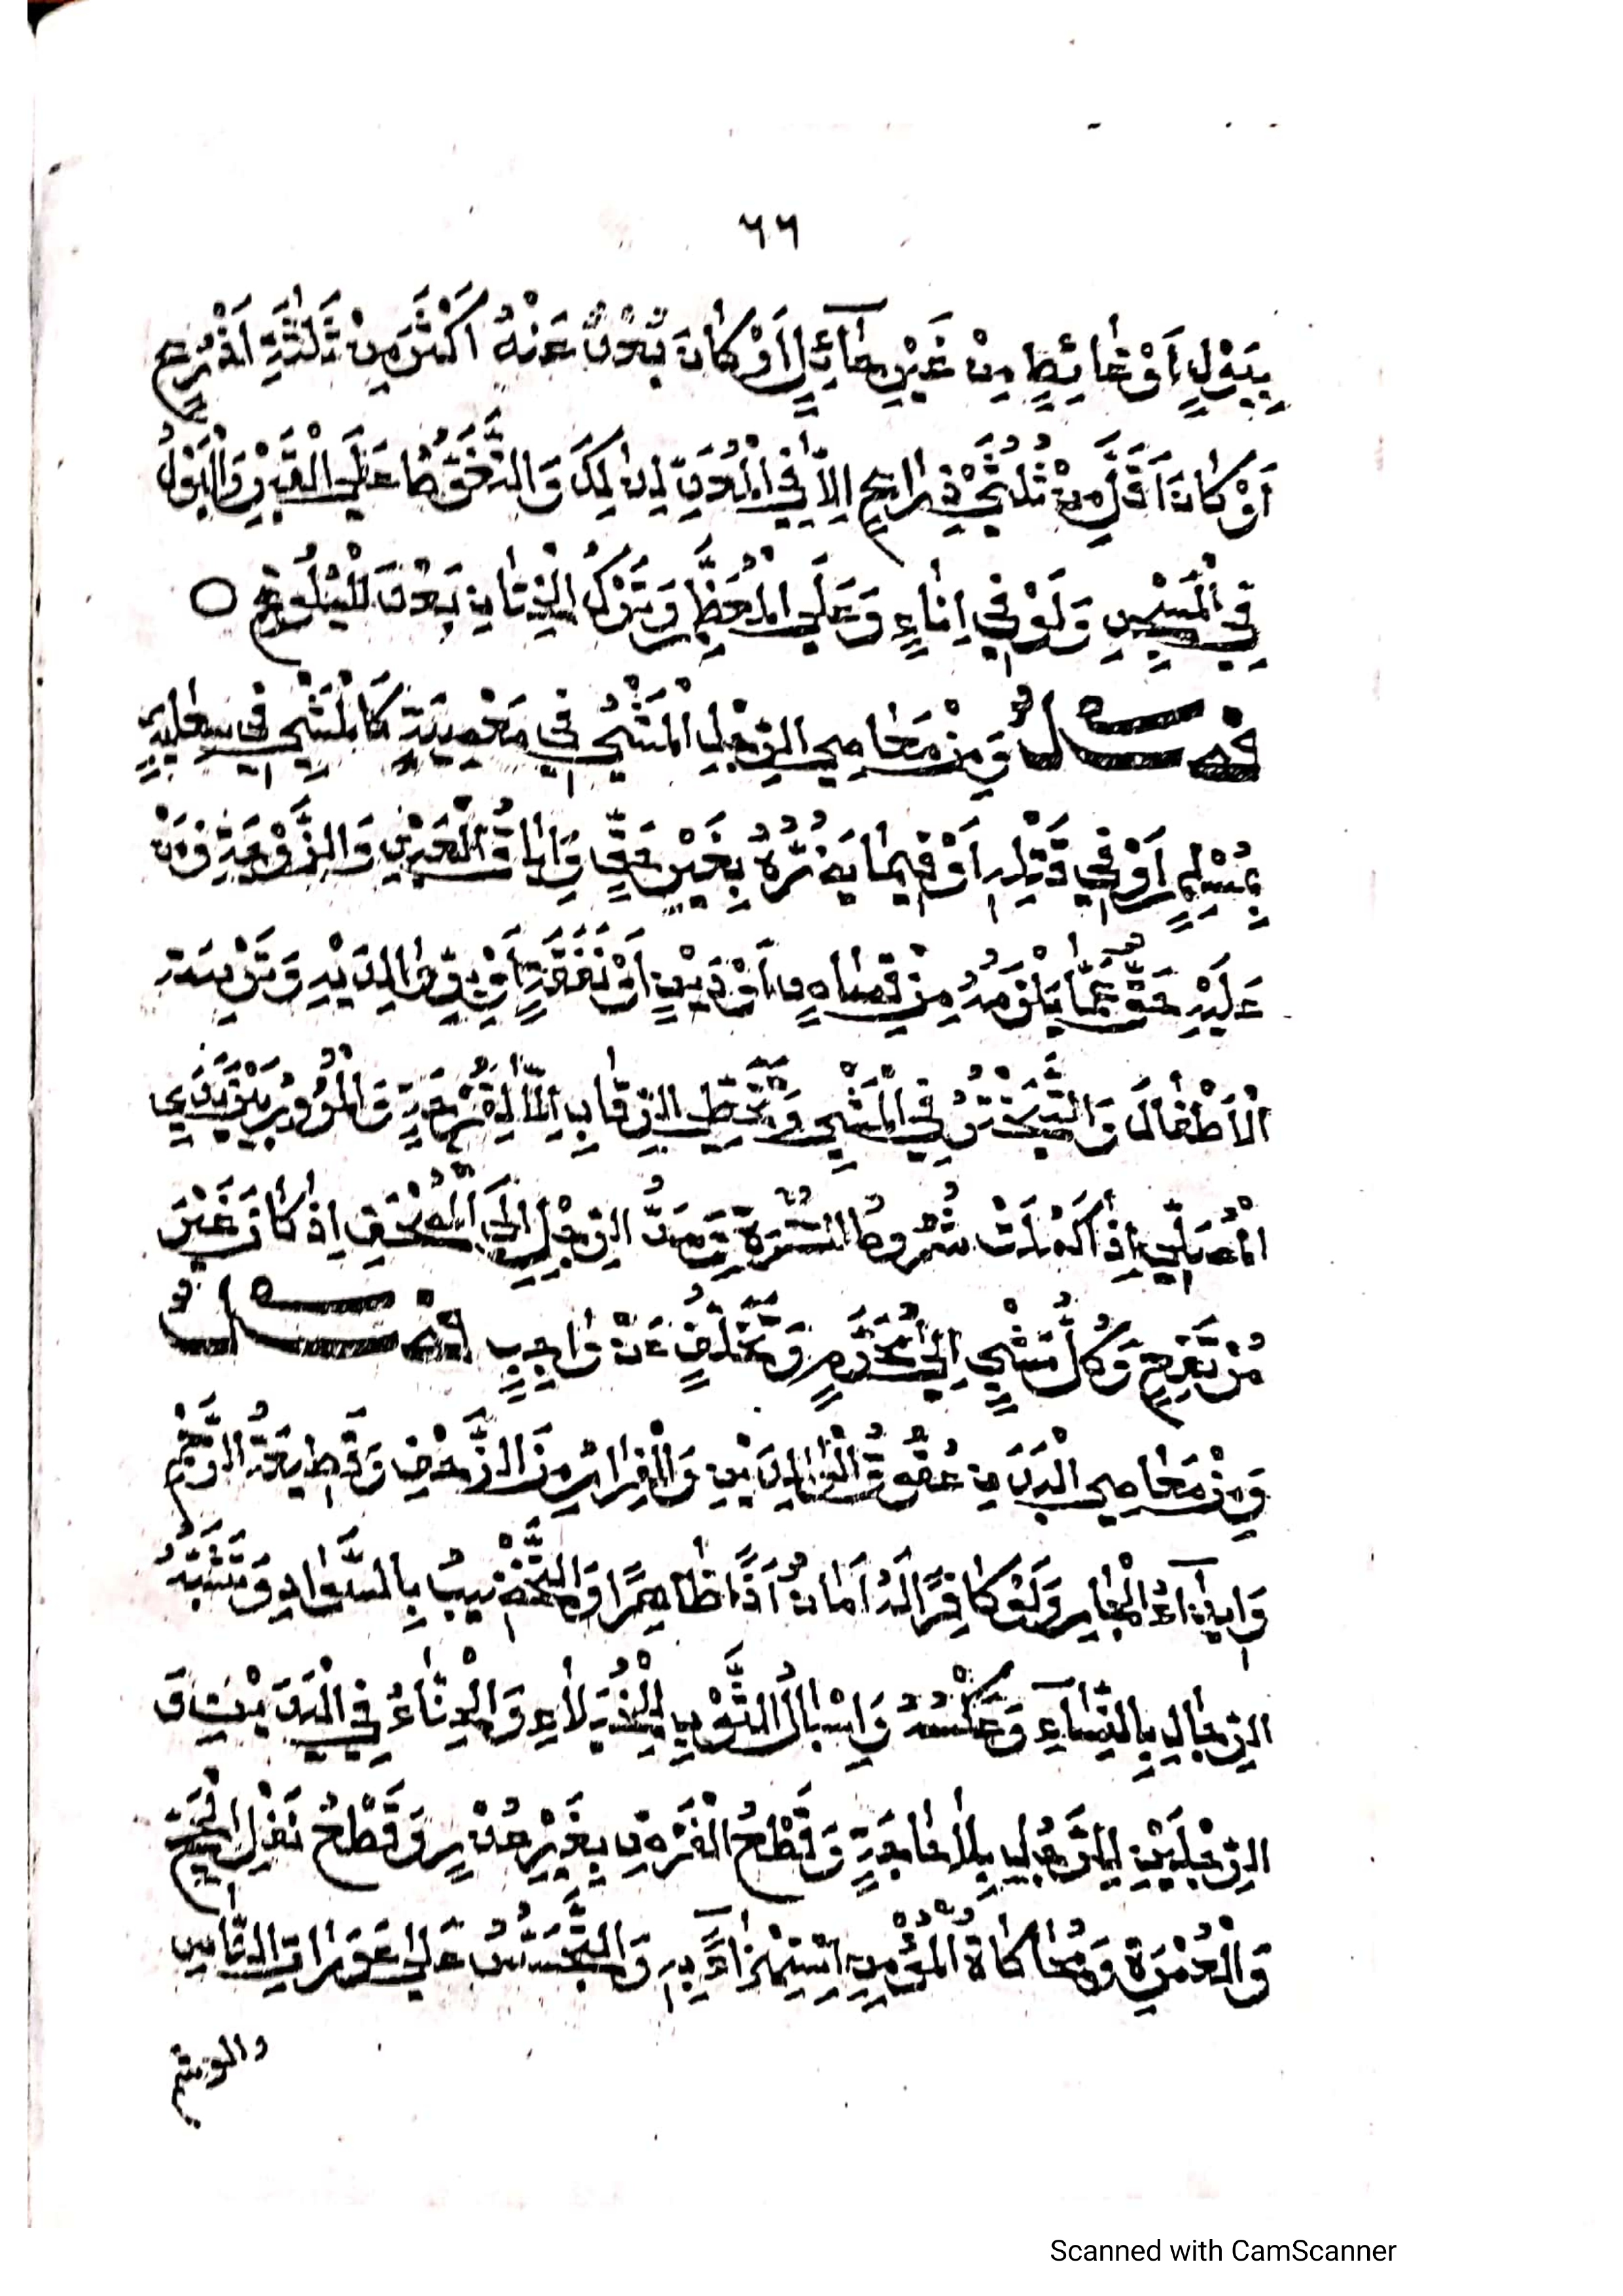 ٦٦
بِبَوْلٍ اَوْ غَائِطٍ مِنْ غَيْرِ حَآئِلٍ اَوْ كَانَ بَعُدَ عَنْهُ اَكْثَرَ مِنْ ثَلٰثَةِ اَذْرُعٍ
اَوْ كَانَ اَقَلَّ مِنْ ثُلُثَيْ ذِرَاعٍ اِلَّا فِي الْمُعَدِّ لِذٰلِكَ وَالتَّغَوُّطُ عَلَى الْقَبْرِ وَالْبَوْلُ
فِي الْمَسْجِدِ وَلَوْ فِي اِنَاءٍ وَعَلَى الْمُعَظَّمِ وَتَرْكُ الْخِتَانِ بَعْدَ الْبُلُوْغِ ○
فَصْلٌ وَمِنْ مَعَاصِي الرِّجْلِ الْمَشْيُ فِي مَعْصِيَةٍ كَالْمَشْيِ فِي سِعَايَةٍ
بِمُسْلِمٍ اَوْ فِي قَتْلِهِ اَوْ فِيمَا يَضُرُّهُ بِغَيْرِ حَقٍّ وَاِبَاقُ الْعَبْدِ وَالزَّوْجَةِ وَمَنْ
عَلَيْهِ حَقٌّ عَمَّا يَلْزَمُهُ مِنْ قِصَاصٍ اَوْ دَيْنٍ اَوْ نَفَقَةٍ اَوْ بِرِّ وَالِدَيْهِ وَتَرْبِيَةِ
الْاَطْفَالِ وَالتَّبَخْتُرُ فِي الْمَشْيِ وَتَخَطِّي الرِّقَابِ اِلَّا لِفُرْجَةٍ وَالْمُرُورُ بَيْنَ يَدَيِ
الْمُصَلِّي اِذَا كَمُلَتْ شُرُوطُ السُّتْرَةِ وَمَدُّ الرِّجْلِ اِلَى الْمُصْحَفِ اِذَا كَانَ غَيْرَ
مُرْتَفِعٍ وَكُلُّ مَشْيٍ اِلَى مُحَرَّمٍ وَتَخَلُّفٍ عَنْ وَاجِبٍ فَصْلٌ
وَمِنْ مَعَاصِي الْبَدَنِ عُقُوقُ الْوَالِدَيْنِ وَالْفِرَارُ مِنَ الزَّحْفِ وَقَطِيعَةُ الرَّحِمِ
وَاِيذَآءُ الْجَارِ وَلَوْ كَافِرًا لَهُ اَمَانٌ اَذًا ظَاهِرًا وَالتَّخْضِيبُ بِالسَّوَادِ وَتَشَبُّهُ
الرِّجَالِ بِالنِّسَآءِ وَعَكْسُهُ وَاِسْبَالُ الثَّوْبِ لِلْخُيَلَاءِ وَالْحِنَّاءُ فِي الْيَدَيْنِ وَ
الرِّجْلَيْنِ لِلرَّجُلِ بِلَا حَاجَةٍ وَقَطْعُ الْفَرْضِ بِغَيْرِ عُذْرٍ وَقَطْعُ نَفْلِ الْحَجِّ
وَالْعُمْرَةِ وَمُحَاكَاةُ الْمُؤْمِنِ اِسْتِهْزَاءً بِهِ وَالتَّجَسُّسُ عَلَى عَوَرَاتِ النَّاسِ
والوشم
Scanned with CamScanner